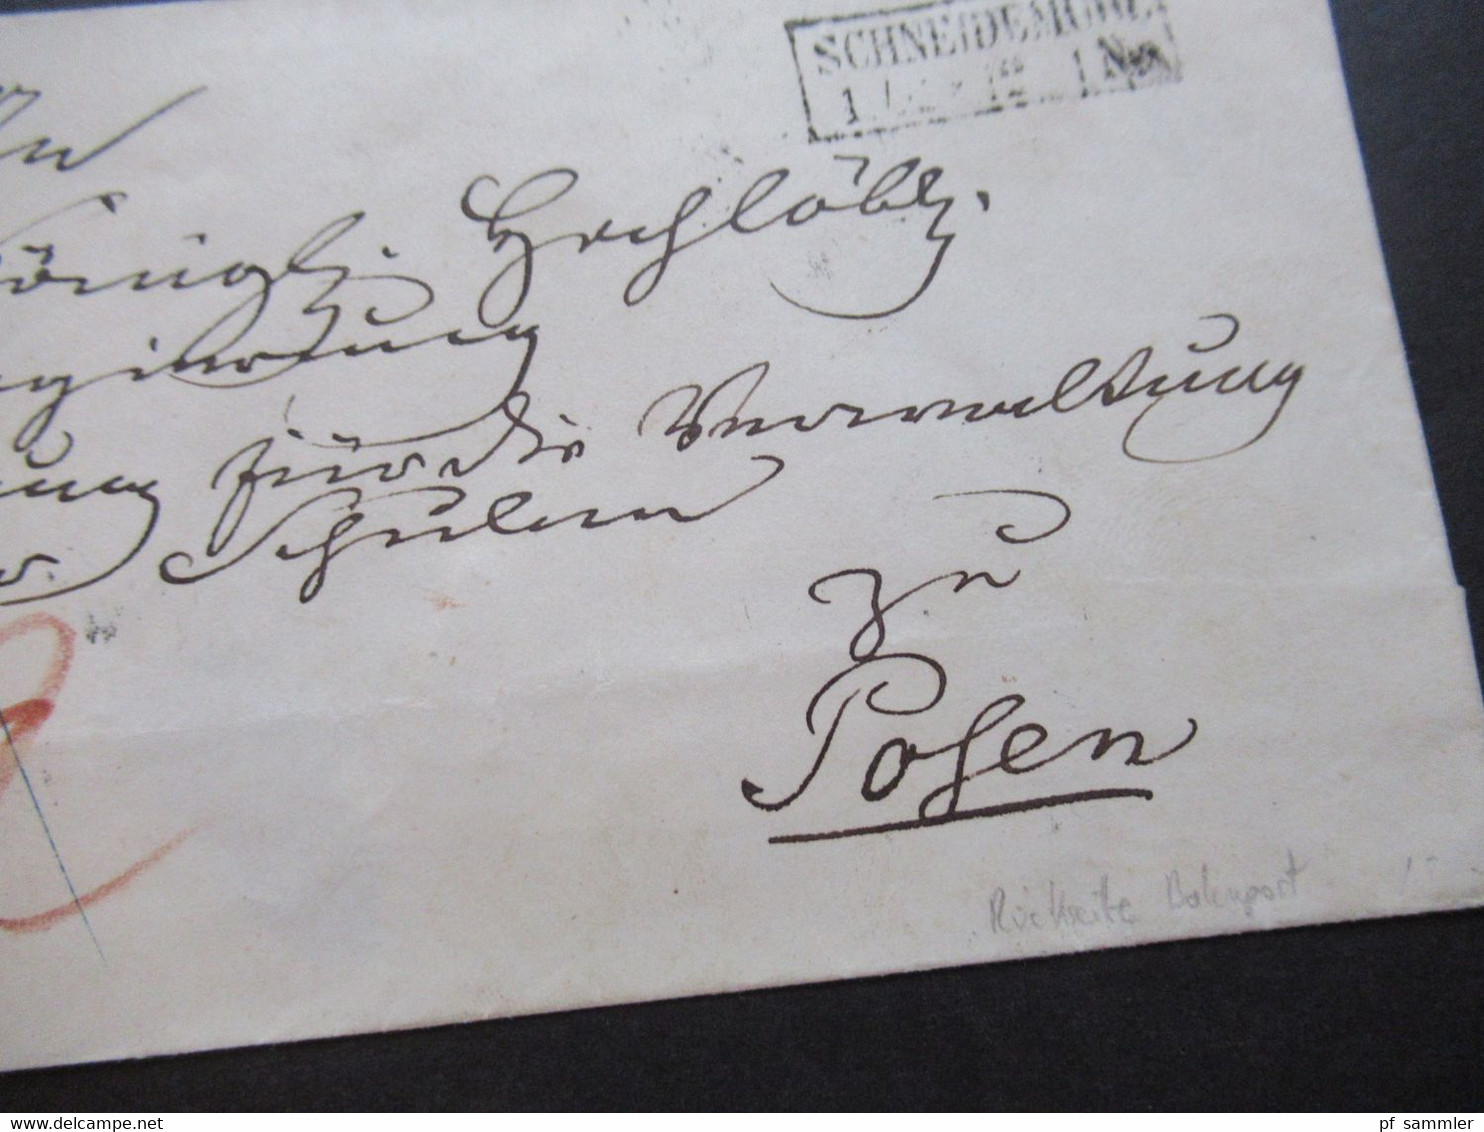 SCHNEIDEMÜHL
1 12 1 N
An
Königl. Hochlöbl.
Regierung
für die Verwaltung
Schulen
zu
Posen
Rückseite Bahnpost
delcampe.net
pf_sammler